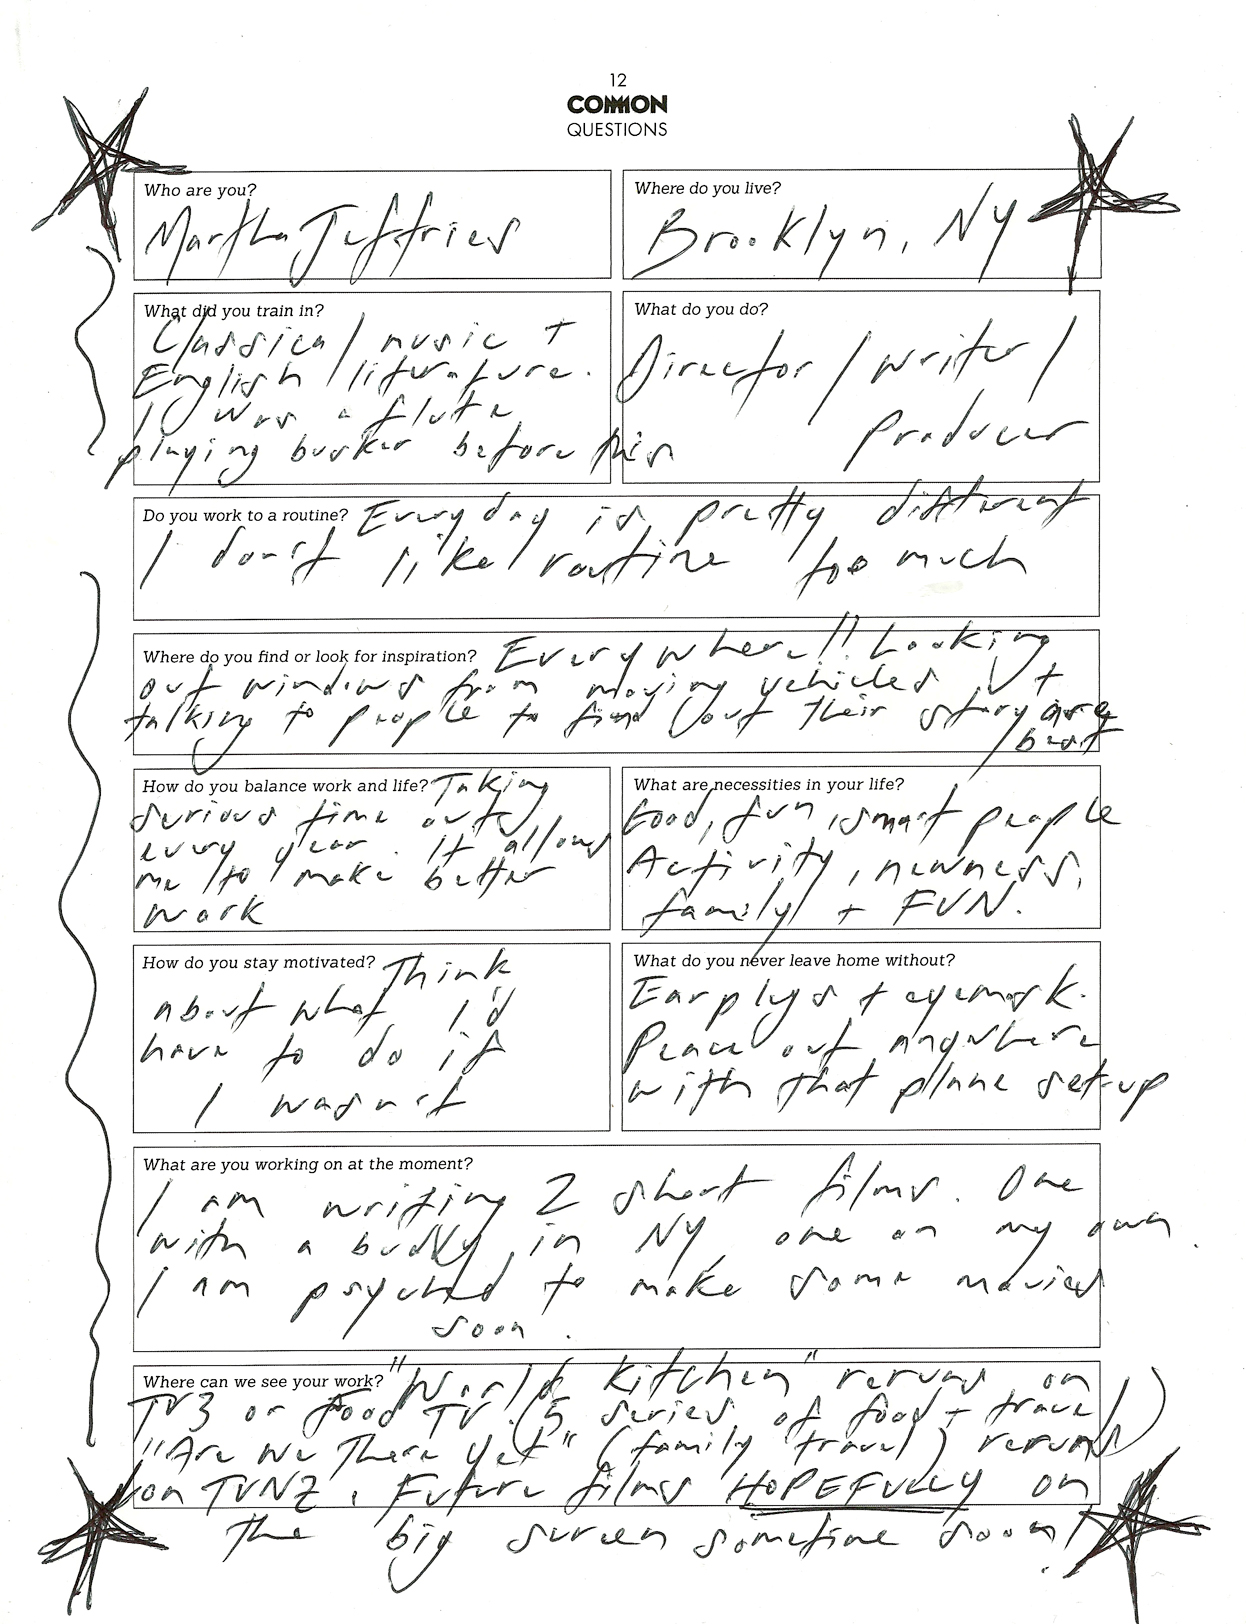 12
COMMON
QUESTIONS
Who are you?
Martha Jeffries
Where do you live?
Brooklyn, NY
What did you train in?
Classical music +
English literature.
I was a flute
playing busker before this
What do you do?
Director / writer /
producer
Do you work to a routine? Everyday is pretty different
I don't like routine too much
Where do you find or look for inspiration? Everywhere!! Looking
out windows from moving vehicles +
talking to people to find out their story are
best
How do you balance work and life? Taking
serious time out
every year. It allows
me to make better
work
What are necessities in your life?
Food, fun, smart people
Activity, newness,
family + FUN.
How do you stay motivated? Think
about what I'd
have to do if
I wasn't
What do you never leave home without?
Earplugs + eyemask.
Peace out anywhere
with that plane set-up
What are you working on at the moment?
I am writing 2 short films. One
with a buddy in NY, one on my own.
I am psyched to make some movies
soon.
Where can we see your work? "World Kitchen" reruns on
TV3 or Food TV (5 series of food + travel)
"Are We There Yet" (family travel) reruns
on TVNZ. Future films HOPEFULLY on
the big screen sometime soon!